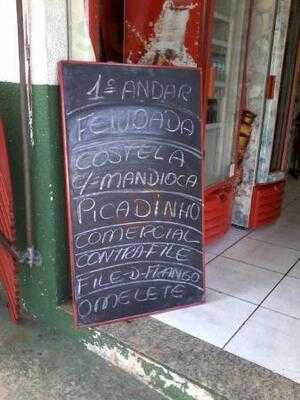 1º ANDAR
FEIJOADA
COSTELA
C/-MANDIOCA
PICADINHO
COMERCIAL
CONTRAFILE
FILE-D-FRANGO
OMELETE